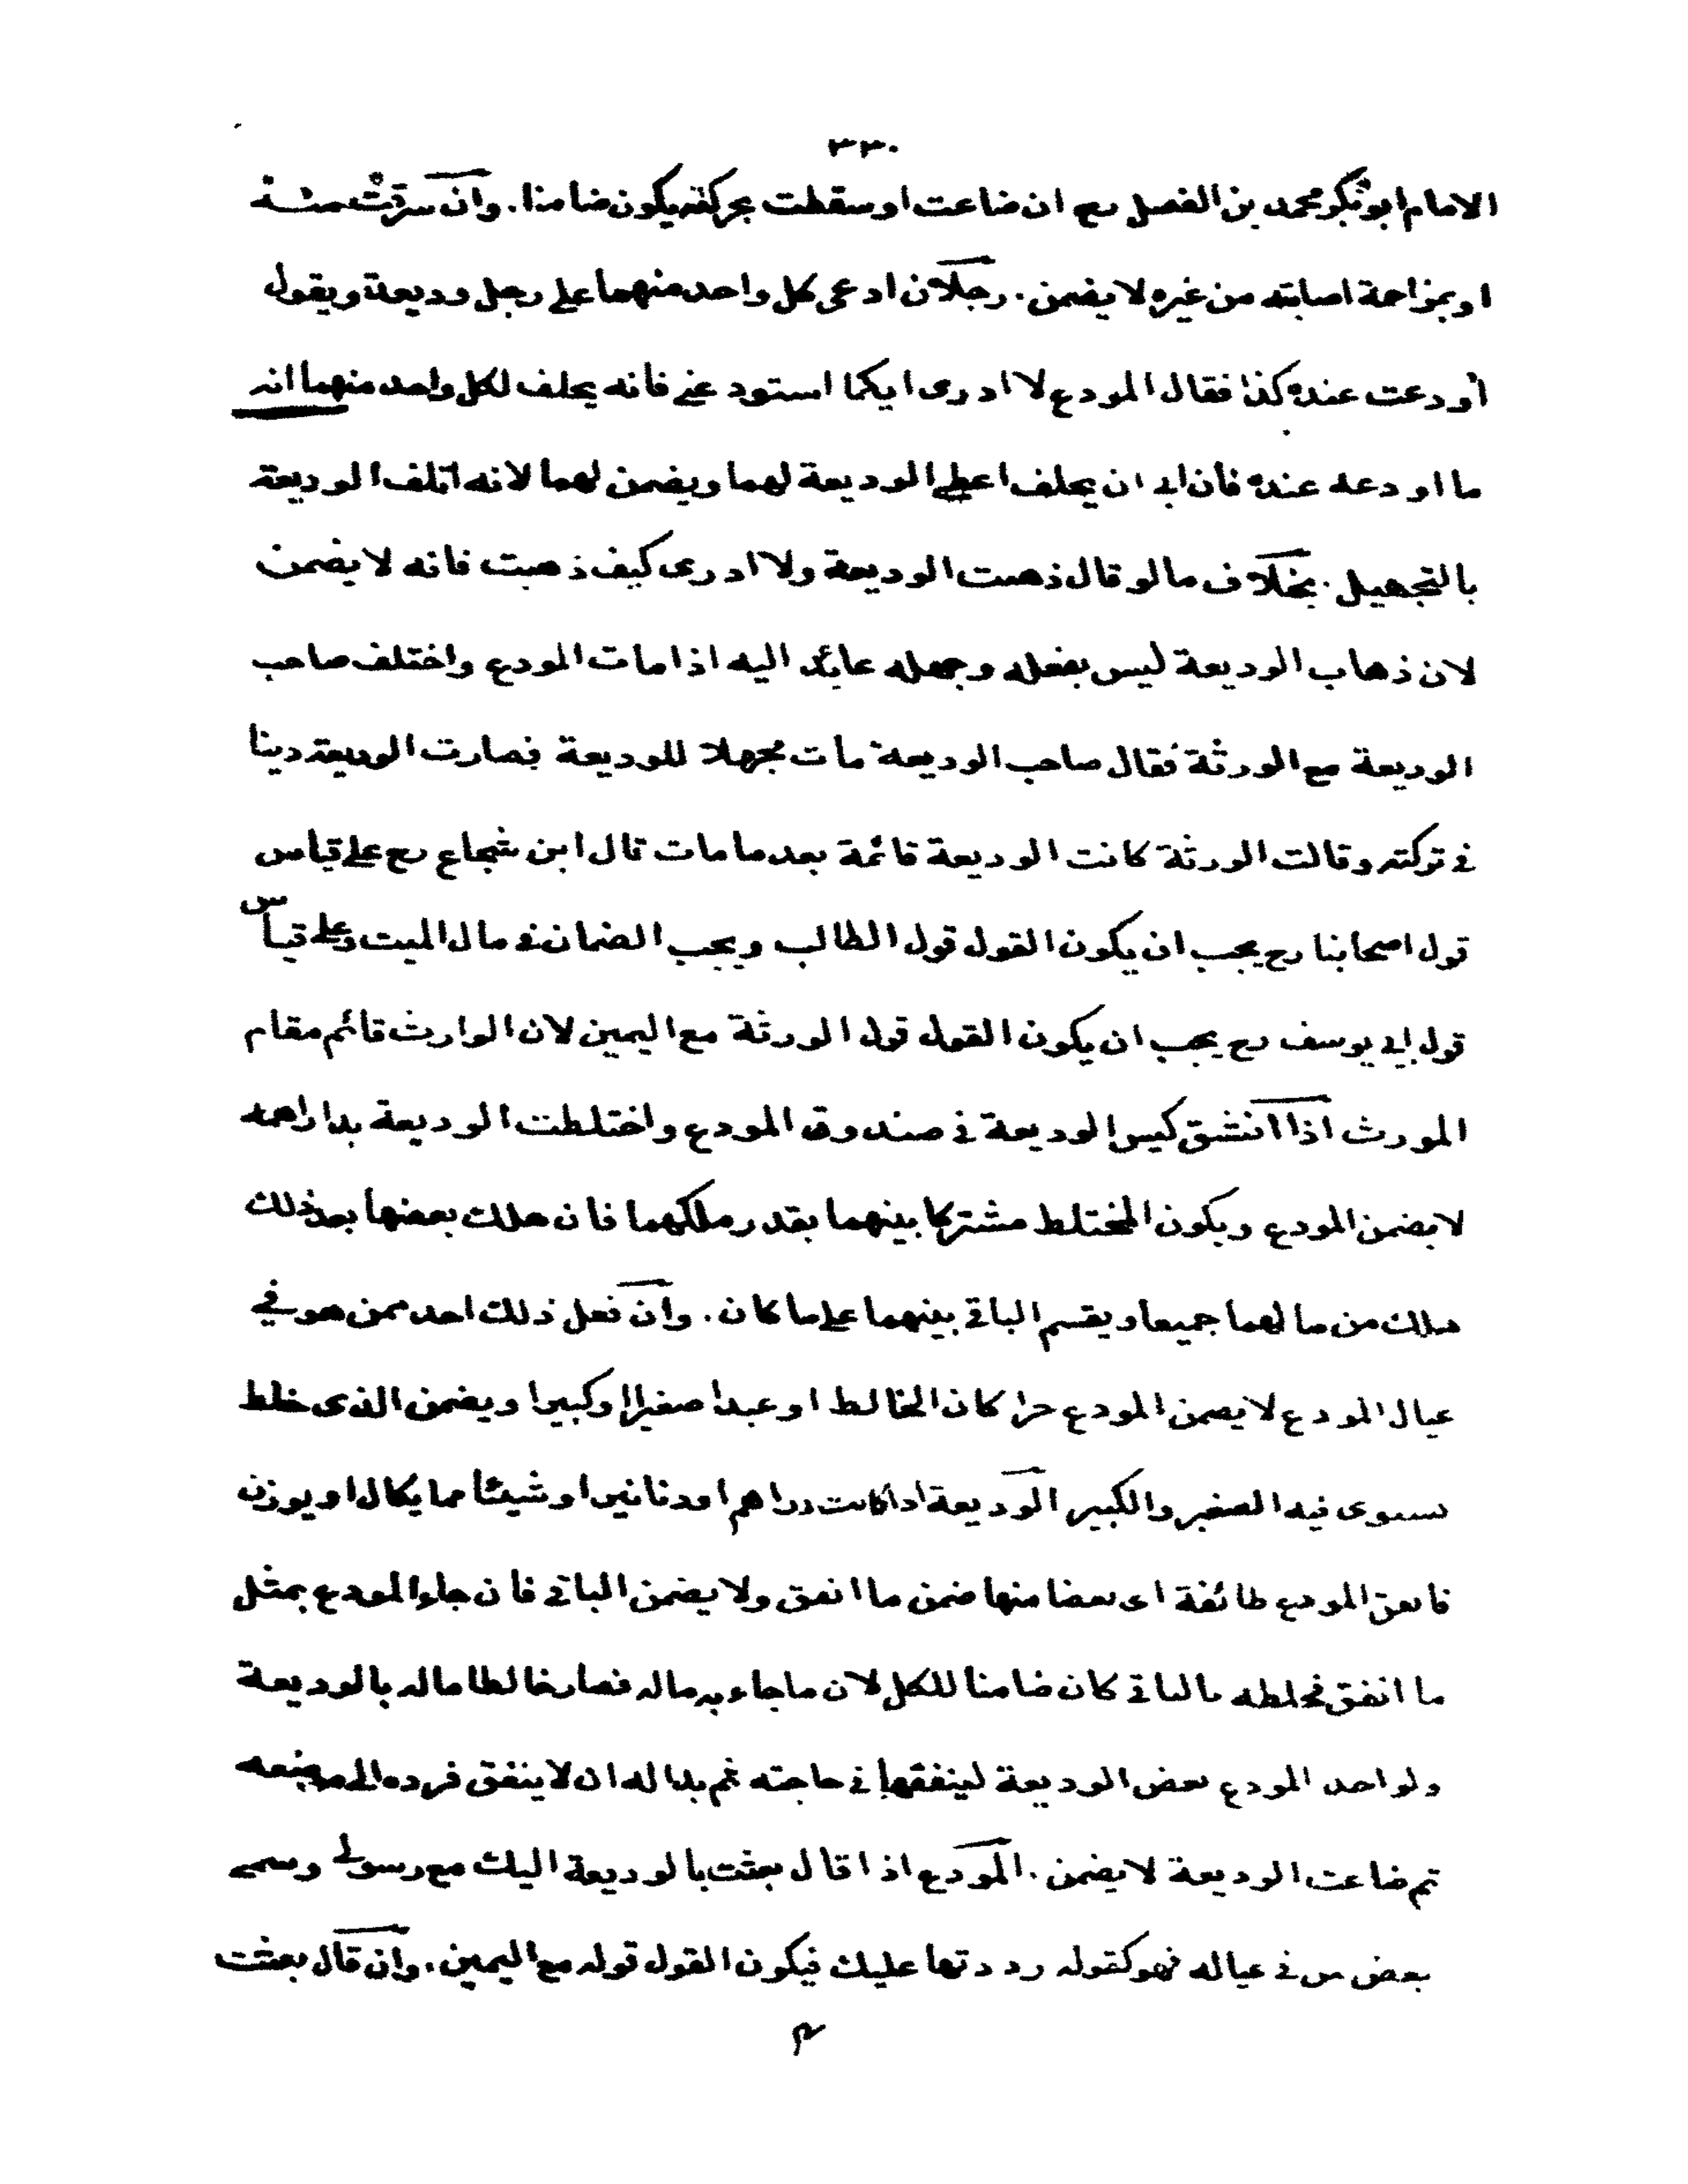 ٣٣٠
الامام ابو بكر محمد بن الفضل رح ان ضاعت او سقطت بحركته يكون ضامنا. وان سرقت منه
او بمزاحمة اصابته من غيره لا يضمن. رجلان ادعى كل واحد منهما على رجل وديعة ويقول
أودعت عنده كذا فقال المودع لا ادرى ايكما استودعنى فانه يحلف لكل واحد منهما انه
ما اودعه عنده فان ابى ان يحلف اعطى الوديعة لهما ويضمن لهما لانه اتلف الوديعة
بالتجهيل. بخلاف ما لو قال ذهبت الوديعة ولا ادرى كيف ذهبت فانه لا يضمن
لان ذهاب الوديعة ليس بفعله وجهله عائد اليه اذا مات المودع واختلف صاحب
الوديعة مع الورثة فقال صاحب الوديعة مات مجهلا للوديعة فصارت الوديعة دينا
فى تركته وقالت الورثة كانت الوديعة قائمة بعد ما مات قال ابن شجاع رح على قياس
قول اصحابنا رح يجب ان يكون القول قول الطالب ويجب الضمان فى مال الميت وعلى قياس
قول ابى يوسف رح يجب ان يكون القول قول الورثة مع اليمين لان الوارث قائم مقام
المورث اذا انشق كيس الوديعة فى صندوق المودع واختلطت الوديعة بدراهمه
لا يضمن المودع ويكون المختلط مشتركا بينهما بقدر ملكهما فان هلك بعضها بعد ذلك
هلك من مالهما جميعا ويقسم الباقى بينهما على ما كان. وان فعل ذلك احد ممن هو فى
عيال المودع لا يضمن المودع حرا كان الخالط او عبدا صغيرا او كبيرا ويضمن الذى خلط
يستوى فيه الصغير والكبير الوديعة اذا كانت دراهم او دنانير او شيئا مما يكال او يوزن
فانفق المودع طائفة اى بعضا منها ضمن ما انفق ولا يضمن الباقى فان جاء المودع بمثل
ما انفق فخلطه بالباقى كان ضامنا للكل لان ما جاء به ماله فصار خالطا ماله بالوديعة
ولو اخذ المودع بعض الوديعة لينفقها فى حاجته ثم بدا له ان لا ينفق فرده الى موضعه
ثم ضاعت الوديعة لا يضمن. المودع اذا قال بعثت بالوديعة اليك مع رسولى وسمى
بعض من فى عياله فهو كقوله رددتها عليك فيكون القول قوله مع اليمين. وان قال بعثت